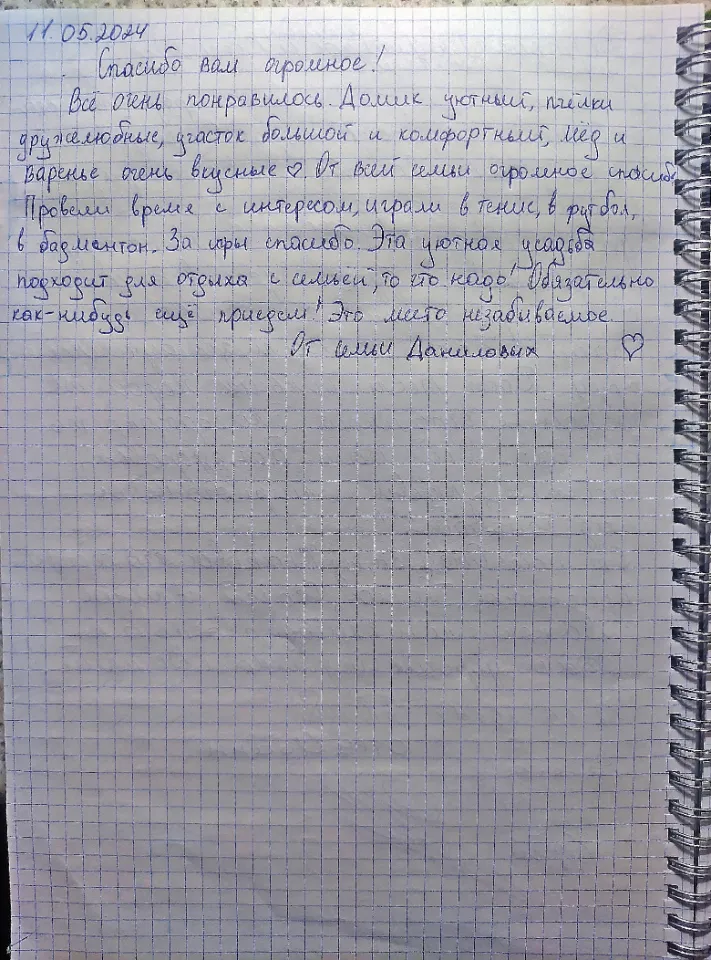 11.05.2024
Спасибо вам огромное!
Всё очень понравилось. Домик уютный, пчёлки
дружелюбные, участок большой и комфортный, мёд и
варенье очень вкусные ♡ От всей семьи огромное спасибо
Провели время с интересом, играли в тенис, в футбол,
в бадментон. За игры спасибо. Эта уютная усадьба
подходит для отдыха с семьёй, то что надо! Обязательно
как-нибудь ещё приедем! Это место незабываемое.
От семьи Даниловых ♡